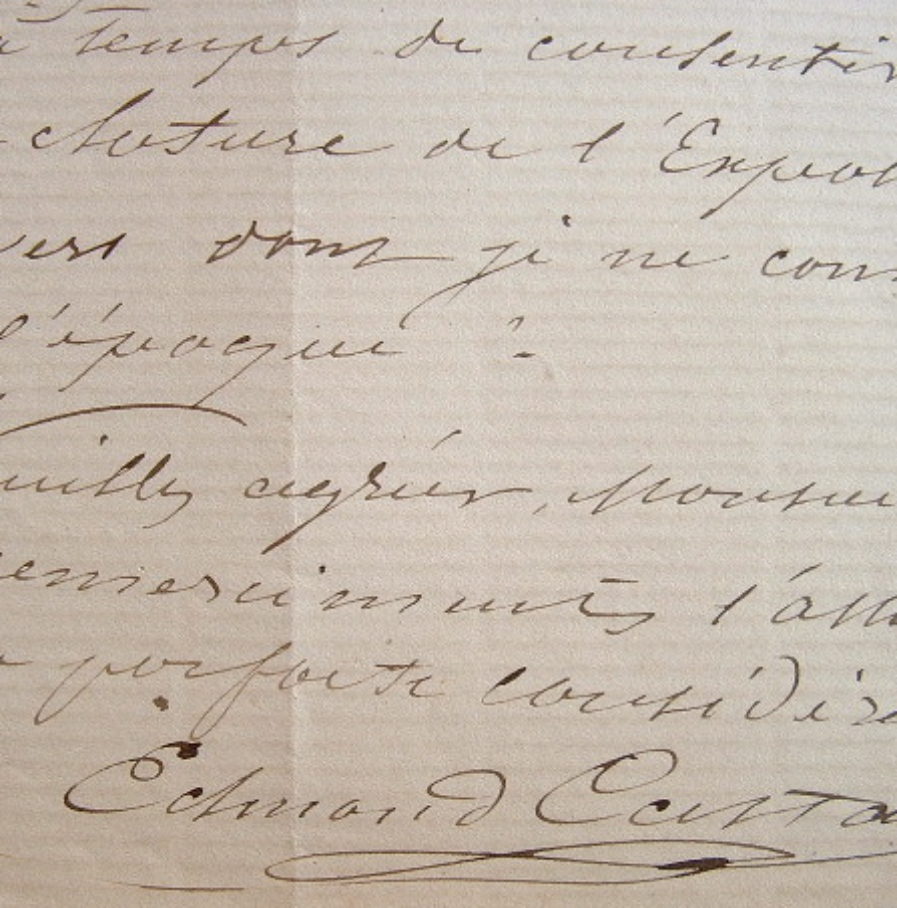 temps de consentir
cloture de l'Expos
dont je ne con
l'époque ?
agréer, Monsieu
remerciments l'ass
parfaite considéra
Edmond Casta